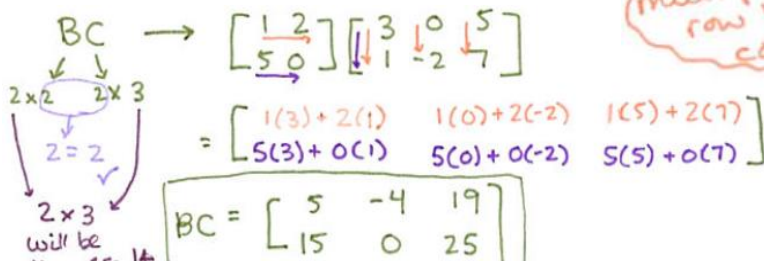 BC → [ 1 2 ] [ 3 0 5 ]
[ 5 0 ] [ 1 -2 7 ]
row
2×2 2×3
2=2 ✓
= [ 1(3)+2(1) 1(0)+2(-2) 1(5)+2(7) ]
[ 5(3)+0(1) 5(0)+0(-2) 5(5)+0(7) ]
2×3
will be
BC = [ 5 -4 19 ]
[ 15 0 25 ]